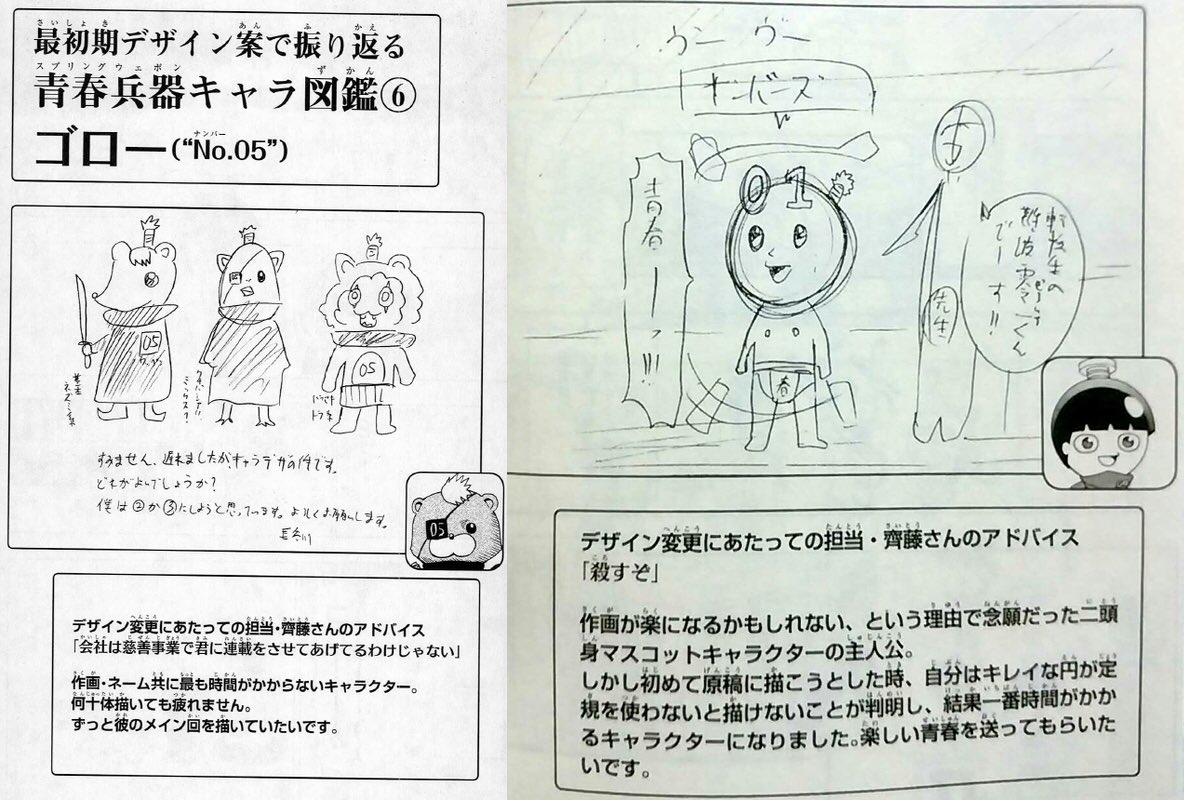 最初期デザイン案で振り返る
青春兵器キャラ図鑑⑥
スプリングウェポン
ゴロー("No.05")
ナンバー
05
05
ドラネコ系
すみません、遅れましたがキャラデザの件です。
どれがよいでしょうか?
僕は②か③にしようと思っています。よろしくお願いします。
長谷川
05
デザイン変更にあたっての担当・齊藤さんのアドバイス
「会社は慈善事業で君に連載をさせてあげてるわけじゃない」
作画・ネーム共に最も時間がかからないキャラクター。
何十体描いても疲れません。
ずっと彼のメイン回を描いていたいです。
ウー ヴー
ナンバーズ
01
青春ーーッ!!!
春
先生
転校生の
難波零一くん
でーす!!
デザイン変更にあたっての担当・齊藤さんのアドバイス
「殺すぞ」
作画が楽になるかもしれない、という理由で念願だった二頭
身マスコットキャラクターの主人公。
しかし初めて原稿に描こうとした時、自分はキレイな円が定
規を使わないと描けないことが判明し、結果一番時間がかか
るキャラクターになりました。楽しい青春を送ってもらいた
いです。